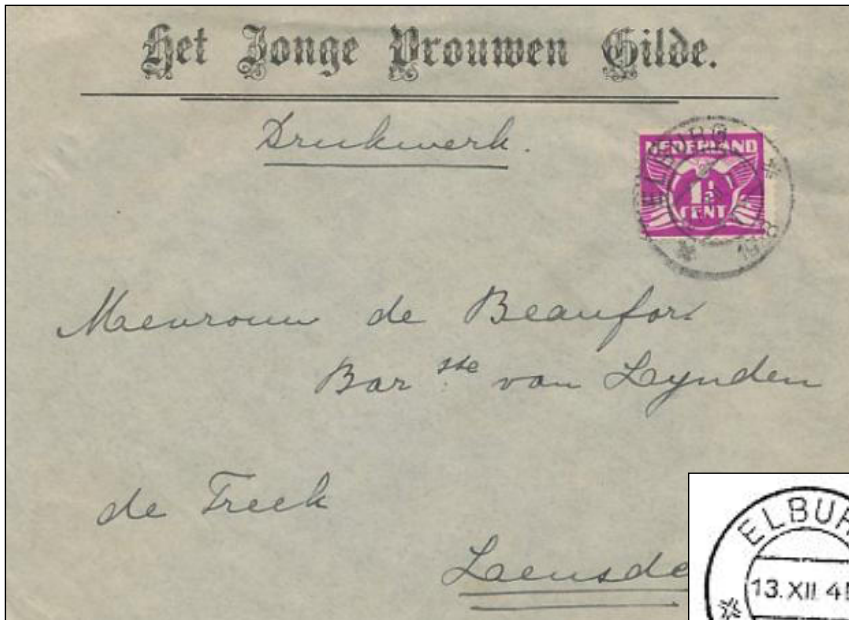 Het Jonge Vrouwen Gilde.
Drukwerk.
NEDERLAND
1½
CENT
ELBURG
Mevrouw de Beaufort
Bar sse van Lynden
de Treek
Leusde
ELBUR
13.XII 4